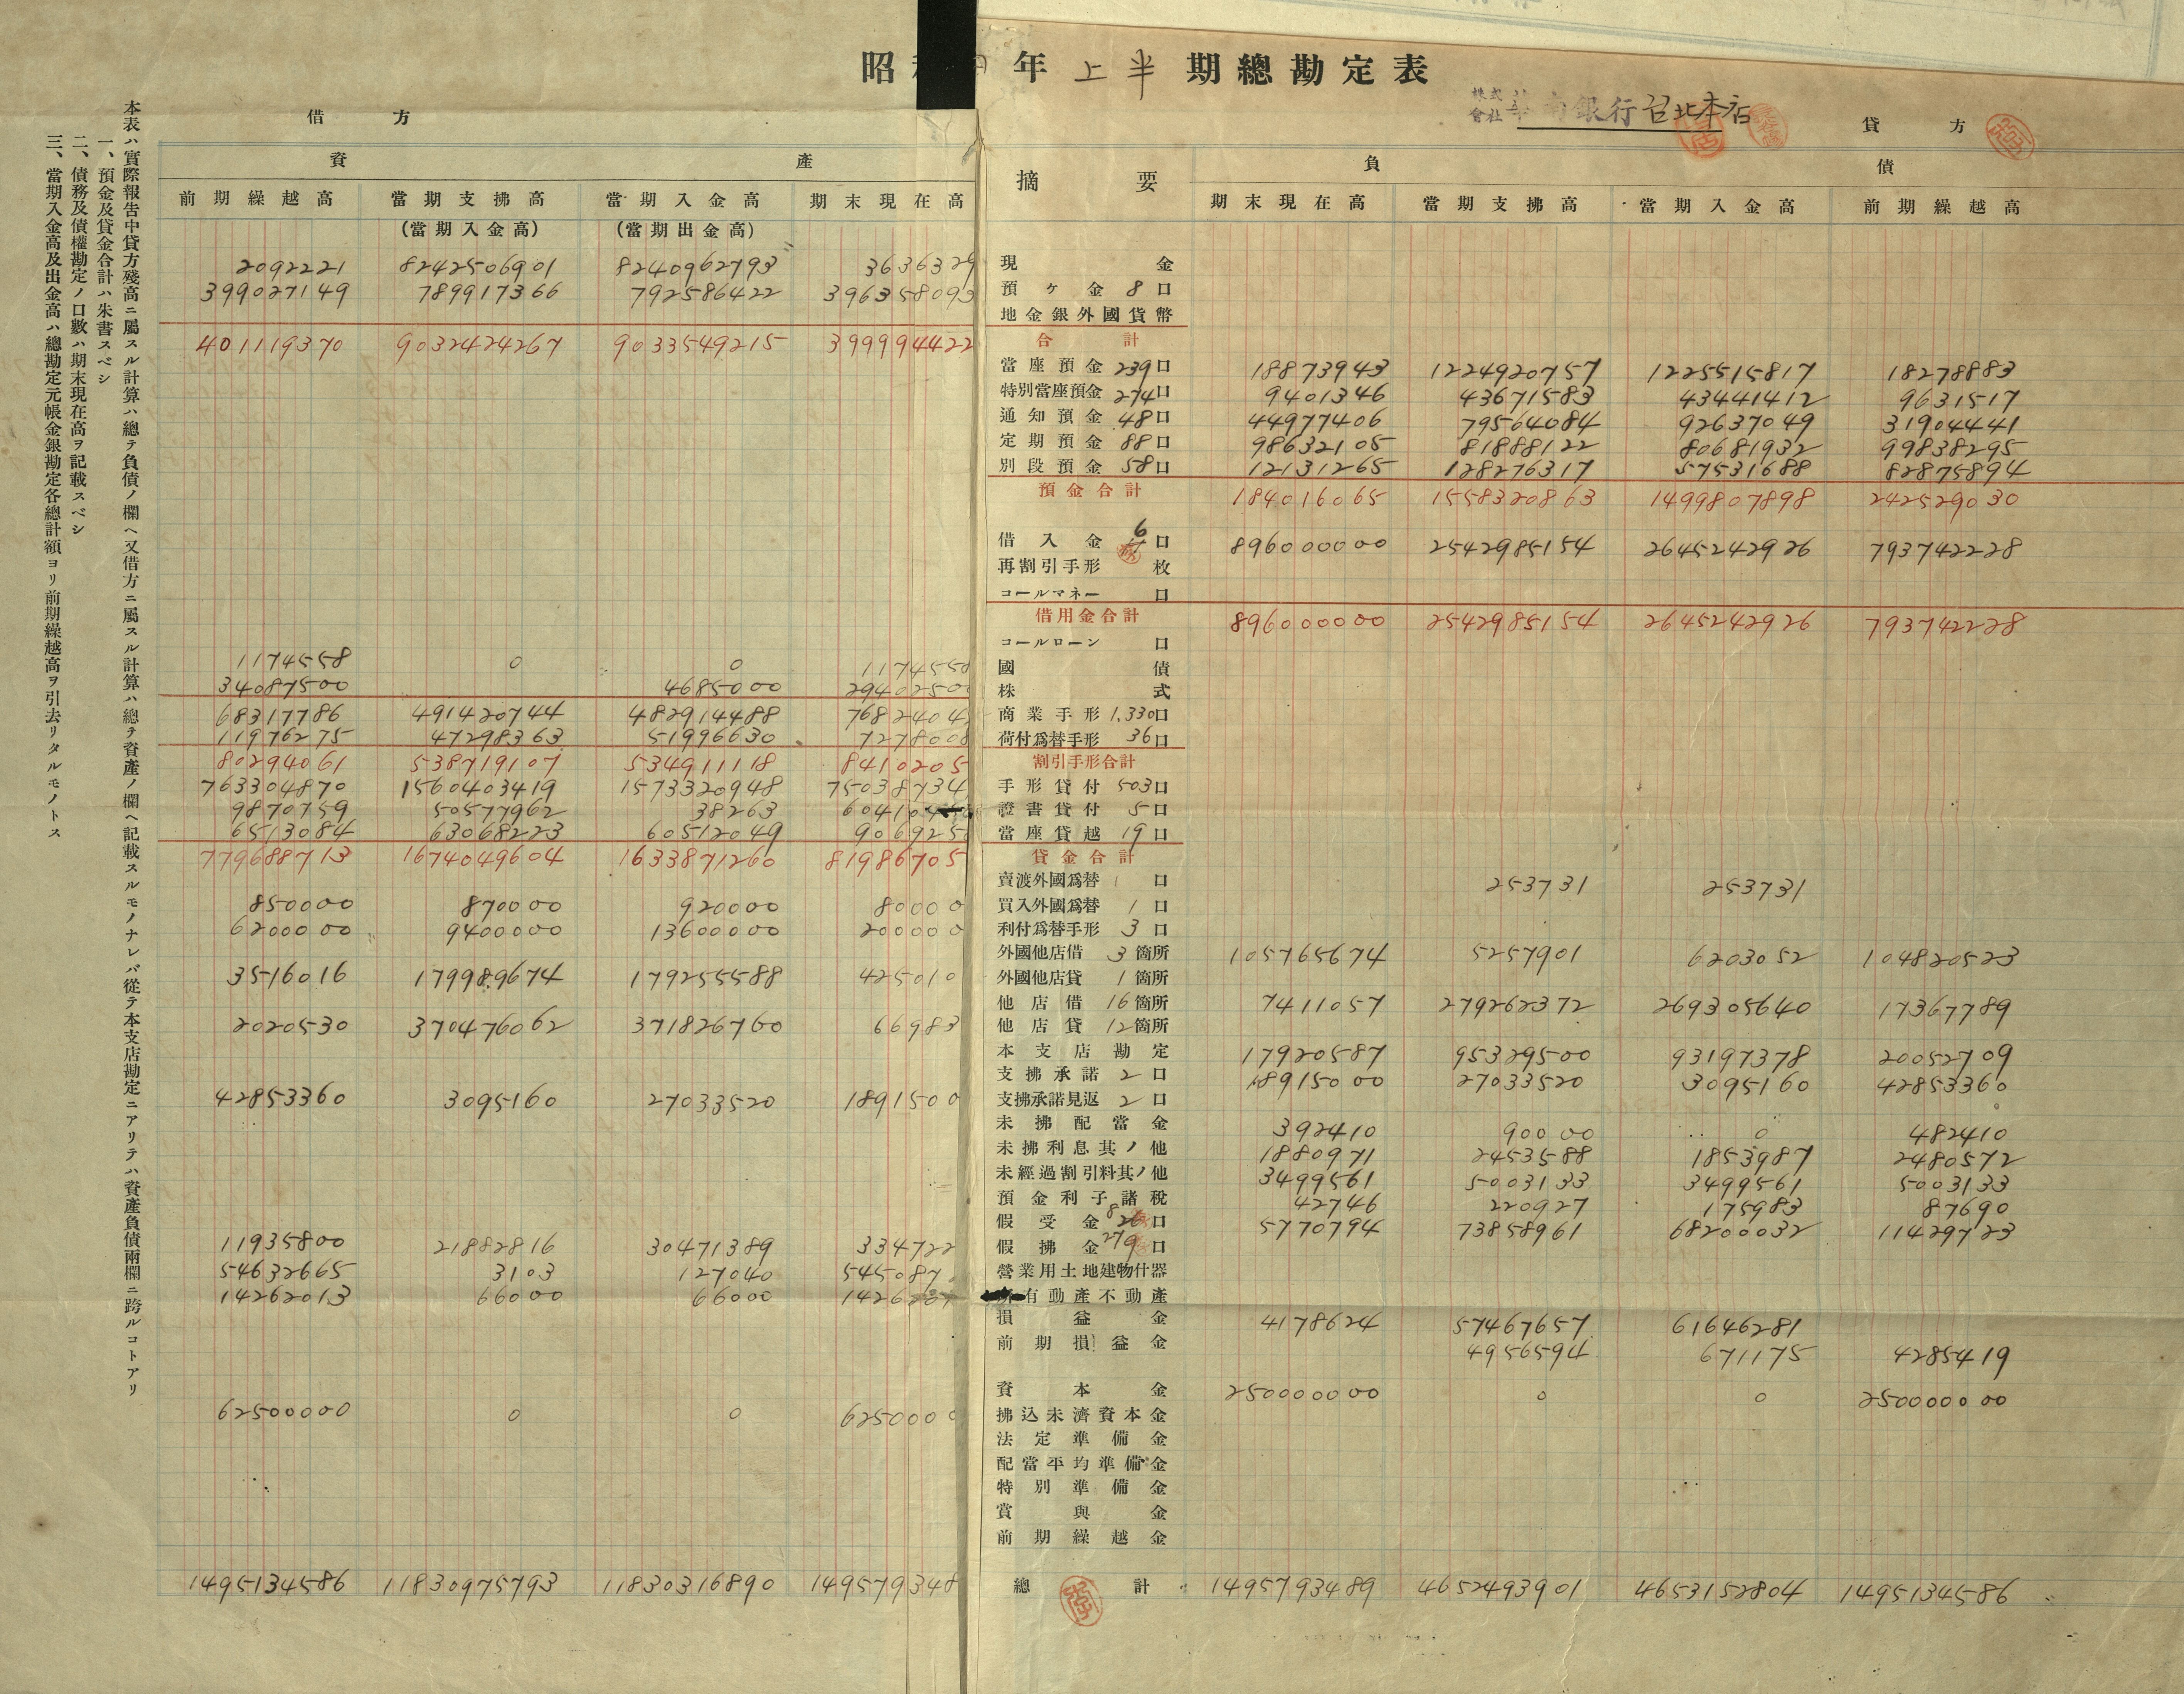 昭 年 上半 期總勘定表
株式會社 華南銀行 台北本店
借方
貸方
資產
摘要
負債
前期繰越高 當期支拂高 當期入金高 期末現在高 期末現在高 當期支拂高 當期入金高 前期繰越高
(當期入金高) (當期出金高)
2092221 8242506901 8240962793 3636329 現金
399027149 789917366 792586422 396358093 預ケ金 8口
地金銀外國貨幣
401119370 9032424267 9033549215 399994422 合計
當座預金 239口 18873943 1224920757 1225515817 18278883
特別當座預金 274口 9401346 43671583 43441412 9631517
通知預金 48口 44977406 79564084 92637049 31904441
定期預金 88口 98632105 81888122 80681932 99838295
別段預金 58口 12131265 128276317 57531688 82875894
預金合計 184016065 1558320863 1499807898 242529030
借入金 6口 896000000 2542985154 2645242926 793742228
再割引手形 枚
コールマネー 口
借用金合計 896000000 2542985154 2645242926 793742228
コールローン 口
1174558 0 0 1174558 國債
34087500 4685000 2940250 株式
68317786 491420744 482914488 7682404 商業手形 1,330口
11976275 47298363 51996630 7278008 荷付爲替手形 36口
80294061 538719107 534911118 8410205 割引手形合計
763304870 1560403419 1573320948 75038734 手形貸付 503口
9870759 50577962 38263 6041 證書貸付 5口
6513084 63068223 60512049 906925 當座貸越 19口
779688713 1674049604 1633871260 81986705 貸金合計
賣渡外國爲替 1口 253731 253731
850000 870000 920000 80000 買入外國爲替 1口
6200000 9400000 13600000 200000 利付爲替手形 3口
外國他店借 3箇所 105765674 5257901 6203052 104820523
3516016 179989674 179255588 425010 外國他店貸 1箇所
他店借 16箇所 7411057 279262372 269305640 17367789
2020530 370476062 371826760 66983 他店貸 12箇所
本支店勘定 17920587 95329500 93197378 20052709
支拂承諾 2口 18915000 27033520 3095160 42853360
42853360 3095160 27033520 1891500 支拂承諾見返 2口
未拂配當金 392410 90000 0 482410
未拂利息其ノ他 1880971 2453588 1853987 2480572
未經過割引料其ノ他 3499561 5003133 3499561 5003133
預金利子諸稅 42746 220927 175983 87690
假受金 口 5770794 73858961 68200032 11429723
11935800 21882816 30471389 334722 假拂金 口
54632665 3103 127040 545087 營業用土地建物什器
14262013 66000 66000 1426 有動產不動產
損益金 4178624 57467657 61646281
前期損益金 4956594 671175 4285419
資本金 250000000 0 0 250000000
62500000 0 0 6250000 拂込未濟資本金
法定準備金
配當平均準備金
特別準備金
賞與金
前期繰越金
1495134586 11830975793 11830316890 149579348 總計 1495793489 4652493901 4653152804 1495134586
本表ハ實際報吿中貸方殘高ニ屬スル計算ハ總テ負債ノ欄ヘ又借方ニ屬スル計算ハ總テ資產ノ欄ヘ記載スルモノナレバ從テ本支店勘定ニアリテハ資產負債兩欄ニ跨ルコトアリ
一、預金及貸金合計ハ朱書スベシ
二、債務及債權勘定ノ口數ハ期末現在高ヲ記載スベシ
三、當期入金高及出金高ハ總勘定元帳金銀勘定各總計額ヨリ前期繰越高ヲ引去リタルモノトス